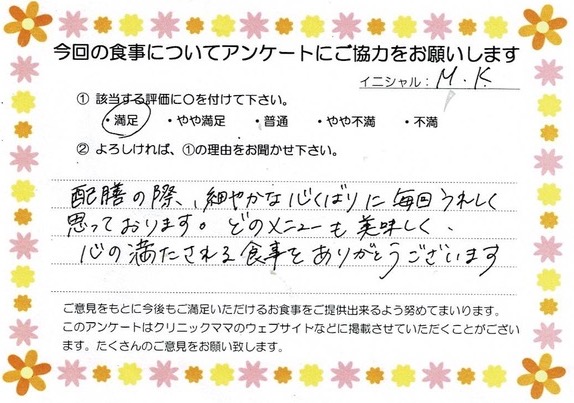 今回の食事についてアンケートにご協力をお願いします
イニシャル：M.K
① 該当する評価に〇を付けて下さい。
・満足　・やや満足　・普通　・やや不満　・不満
② よろしければ、①の理由をお聞かせ下さい。
配膳の際、細やかな心くばりに毎回うれしく
思っております。どのメニューも美味しく、
心の満たされる食事をありがとうございます
ご意見をもとに今後もご満足いただけるお食事をご提供出来るよう努めてまいります。
このアンケートはクリニックママのウェブサイトなどに掲載させていただくことがござい
ます。たくさんのご意見をお願い致します。